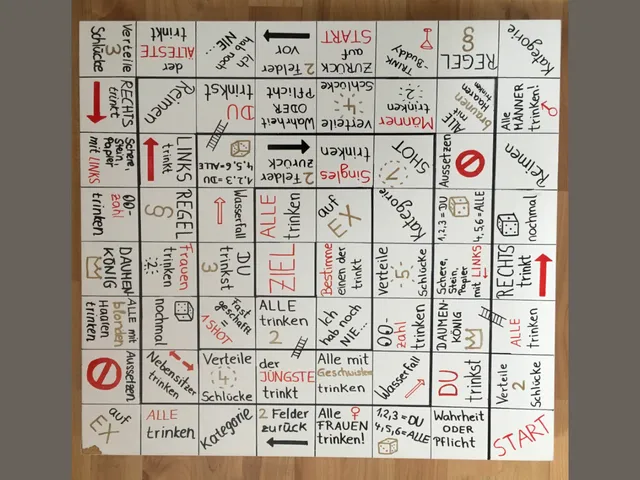 Verteile
3
Schlücke
der
ÄLTESTE
trinkt
Ich
hab noch
NIE...
2 Felder
vor
ZURÜCK
auf
START
TRINK-
Buddy
§
REGEL
Kategorie
RECHTS
trinkt
Reimen
DU
trinkst
Wahrheit
ODER
Pflicht
verteile
4
Schlücke
Männer
2
trinken
ALLE mit
braunen
Haaren
trinken
Alle
MÄNNER
trinken!
Schere,
Stein,
Papier
mit LINKS
LINKS
trinkt
1,2,3=DU
4,5,6=ALLE
2 Felder
zurück
Singles
trinken
SHOT
1
Aussetzen
Reimen
00-
zahl
trinken
REGEL
§
Wasserfall
ALLE
trinken
auf
EX
Kategorie
1,2,3=DU
4,5,6=ALLE
nochmal
DAUMEN
KÖNIG
Frauen
2
trinken
DU
3
trinkst
ZIEL
Bestimme
einen der
trinkt
Verteile
5
Schlücke
Schere,
Stein,
Papier
mit LINKS
RECHTS
trinkt
ALLE mit
blonden
Haaren
trinken
nochmal
Fast
geschafft
=
1 SHOT
ALLE
trinken
2
Ich
hab noch
NIE...
00-
zahl
trinken
DAUMEN-
KÖNIG
ALLE
trinken
Aussetzen
Nebensitzer
trinken
Verteile
4
Schlücke
der
JÜNGSTE
trinkt
Alle mit
Geschwister
trinken
Wasserfall
DU
trinkst
Verteile
2
Schlücke
auf
EX
ALLE
trinken
Kategorie
2 Felder
zurück
Alle
FRAUEN
trinken!
1,2,3=DU
4,5,6=ALLE
Wahrheit
ODER
Pflicht
START